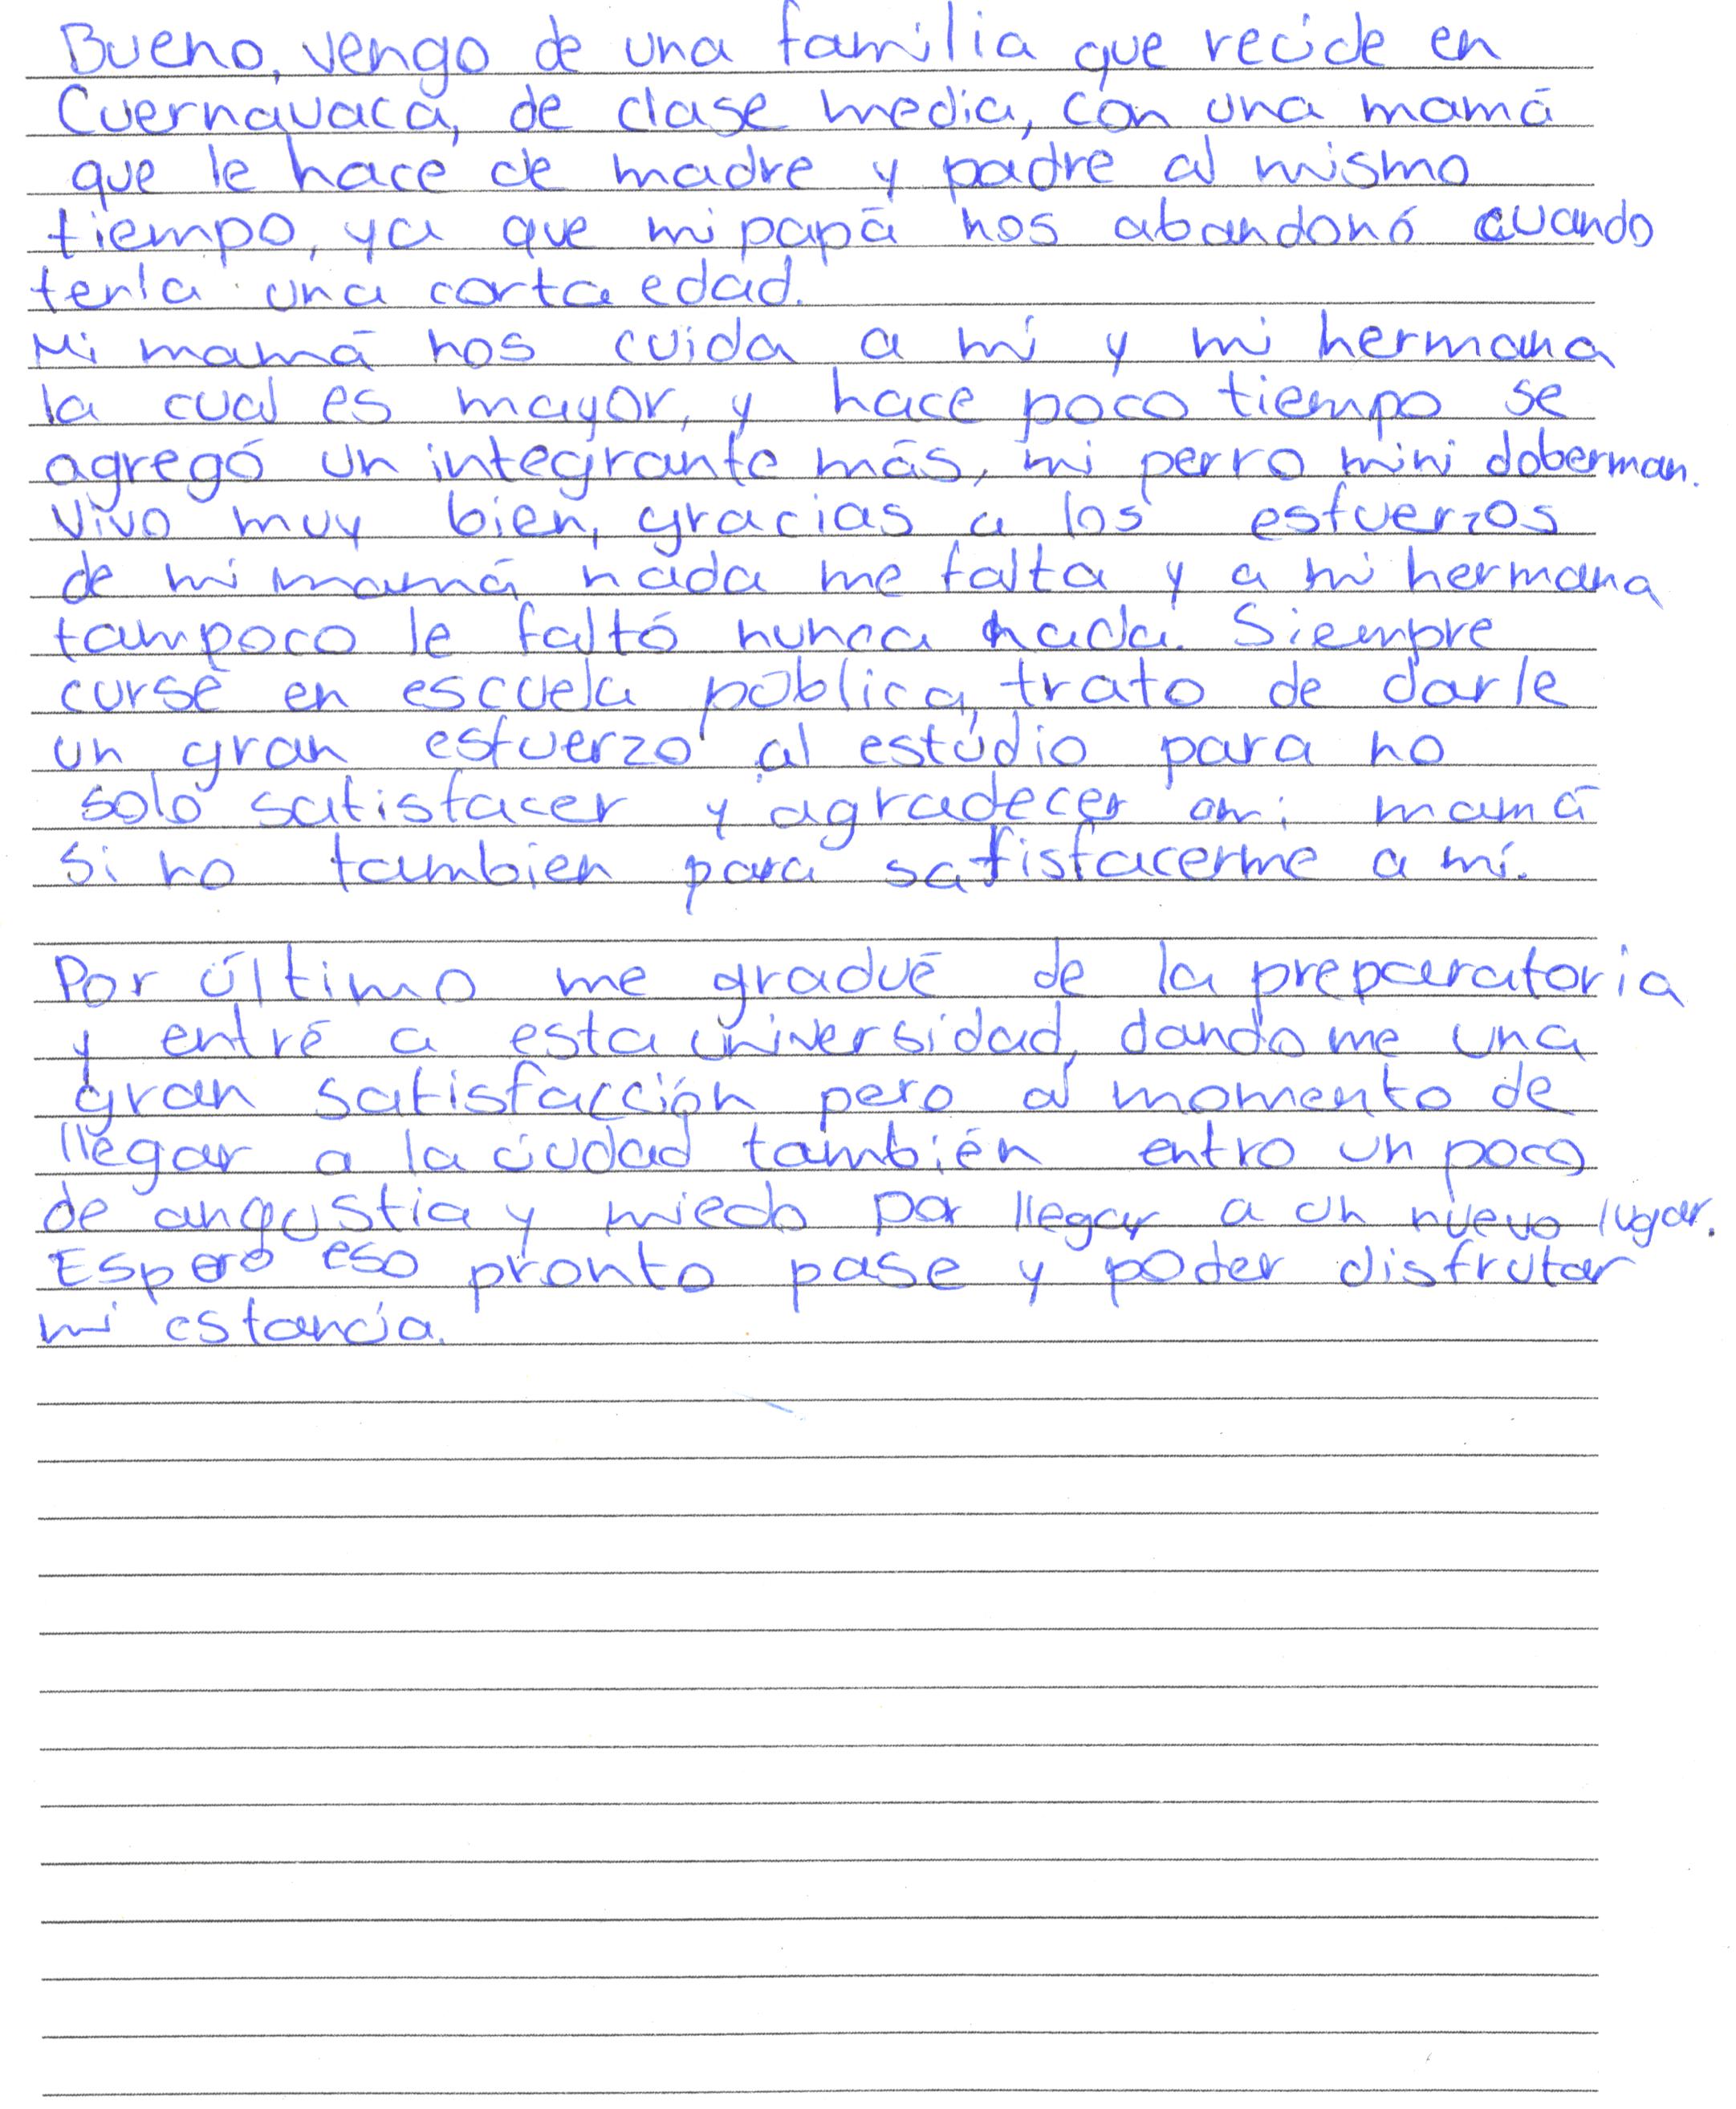 Bueno, vengo de una familia que recide en
Cuernavaca, de clase media, con una mamá
que le hace de madre y padre al mismo
tiempo, ya que mi papá nos abandonó cuando
tenía una corta edad.
Mi mamá nos cuida a mí y mi hermana
la cual es mayor, y hace poco tiempo se
agregó un integrante más, mi perro mini doberman.
Vivo muy bien, gracias a los esfuerzos
de mi mamá nada me falta y a mi hermana
tampoco le faltó nunca nada. Siempre
cursé en escuela pública, trato de darle
un gran esfuerzo al estúdio para no
solo satisfacer y agradecer a mi mamá
si no tambien para satisfacerme a mí.
Por último me gradué de la preparatoria
y entré a esta universidad, dandome una
gran satisfacción pero al momento de
llegar a la ciudad también entro un poco
de angustia y miedo por llegar a un nuevo lugar.
Espero eso pronto pase y poder disfrutar
mi estancia.